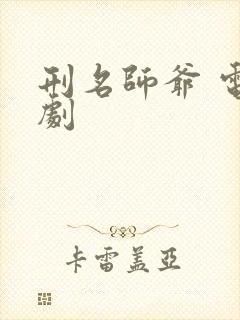 刑名師爺 電
劇
卡雷盖亞